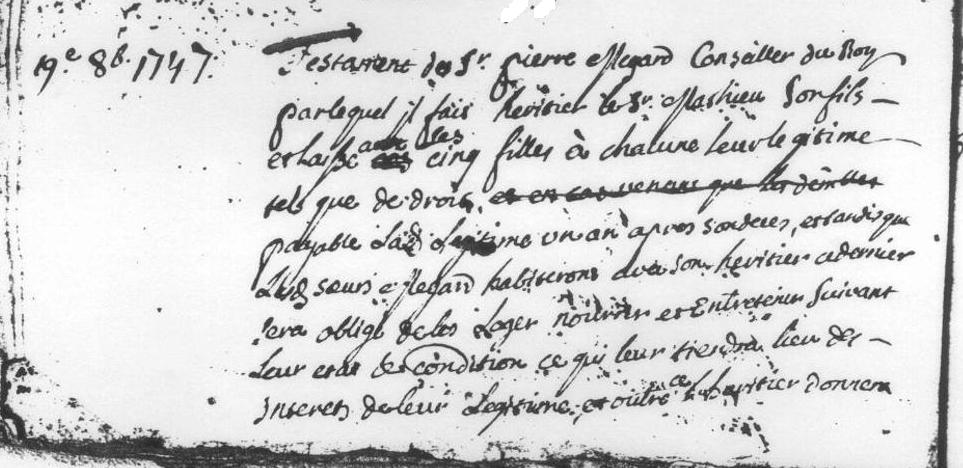 19.e 8b. 1747.
Testament de Sr. pierre Megard Conseiller du Roy
par lequel il fait heritier le Sr. Mathieu Son fils
et laisse aux ses cinq filles à chacune leur legitime
tels que de droit, et en cas venant que les dem
payable Lad. Legitime un an apres son deces, et tandis que
Lesd. sœurs Megard habiteront avec son heritier ce dernier
sera obligé de les Loger nourrir et Entretenir Suivant
Leur etat et condition ce qui leur tiendra lieu des
interets de leur Legitime, et outre ce L'heritier Donnera